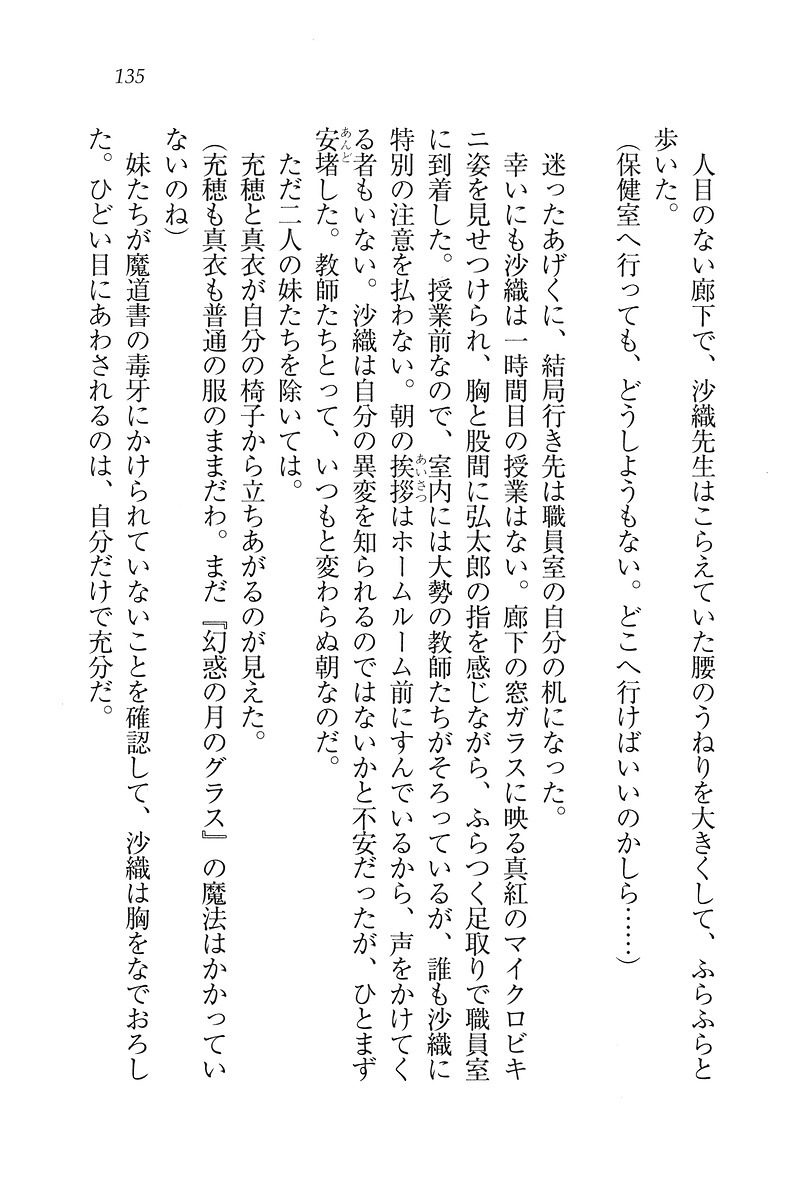 135
人目のない廊下で、沙織先生はこらえていた腰のうねりを大きくして、ふらふらと
歩いた。
（保健室へ行っても、どうしようもない。どこへ行けばいいのかしら……）
迷ったあげくに、結局行き先は職員室の自分の机になった。
幸いにも沙織は一時間目の授業はない。廊下の窓ガラスに映る真紅のマイクロビキ
ニ姿を見せつけられ、胸と股間に弘太郎の指を感じながら、ふらつく足取りで職員室
に到着した。授業前なので、室内には大勢の教師たちがそろっているが、誰も沙織に
特別の注意を払わない。朝の挨拶はホームルーム前にすんでいるから、声をかけてく
る者もいない。沙織は自分の異変を知られるのではないかと不安だったが、ひとまず
安堵した。教師たちとって、いつもと変わらぬ朝なのだ。
ただ二人の妹たちを除いては。
充穂と真衣が自分の椅子から立ちあがるのが見えた。
（充穂も真衣も普通の服のままだわ。まだ『幻惑の月のグラス』の魔法はかかってい
ないのね）
妹たちが魔道書の毒牙にかけられていないことを確認して、沙織は胸をなでおろし
た。ひどい目にあわされるのは、自分だけで充分だ。
あいさつ
あんど